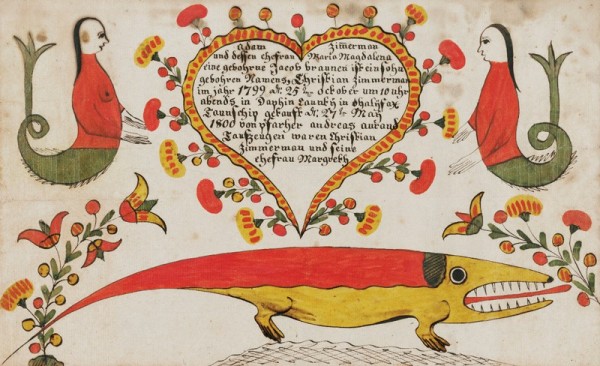 adam Zimerman
und dessen ehefrau Maria Magdalena
eine gebohrne Jacob braunen ist ein sohn
gebohren Namens, Christian Zimmerman
im jahr 1799 25 October um 10 uhr
abends in Daphin Caunty in
Taunschip getauft 27 May
1800 von pfarher andreas
Taufzeugen waren Christian
Zimmerman und seine
ehefrau